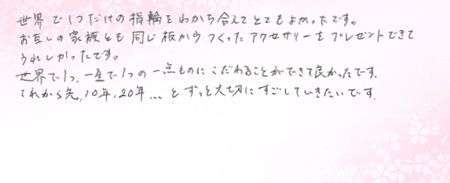 世界で1つだけの指輪をわかち合えてとてもよかったです。
お互いの家族とも同じ板からつくったアクセサリーをプレゼントできて
うれしかったです。
世界で1つ、一点で1つの一点ものにこだわることができて良かったです。
これから先、10年、20年...とずっと大切にすごしていきたいです。